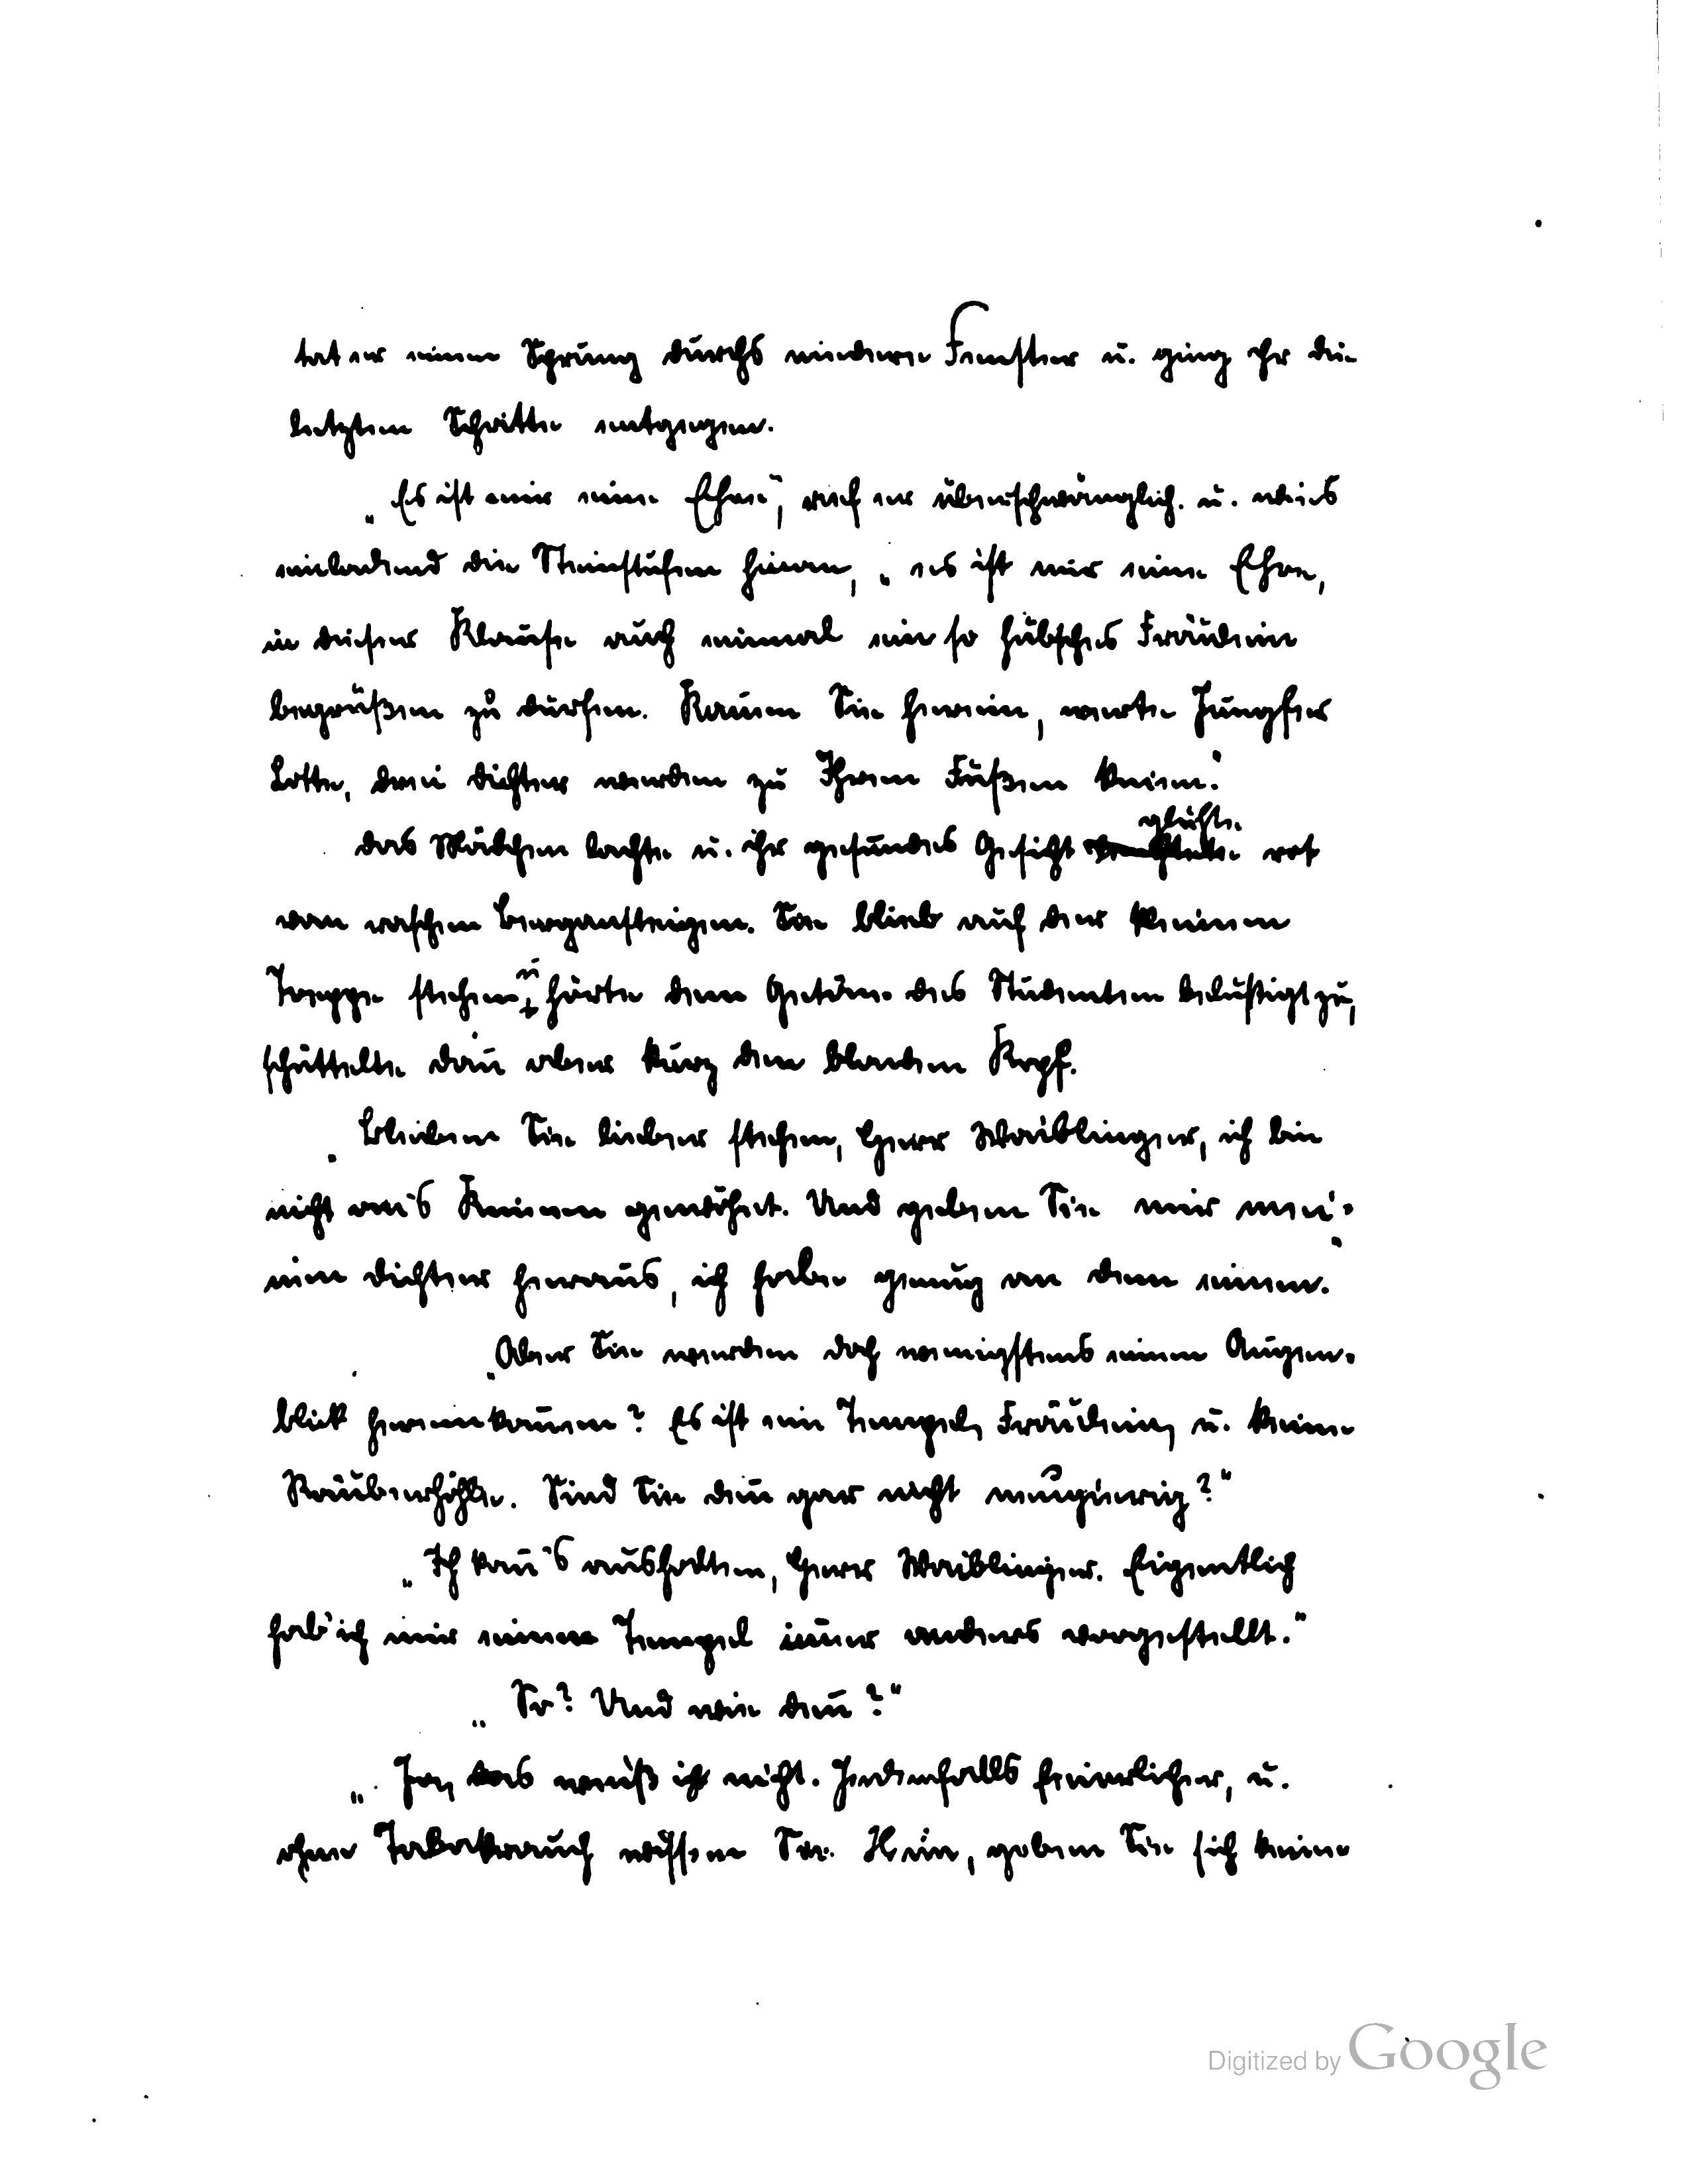 tat er einen Sprung durchs niedere Fenster u. ging ihr die
letzten Schritte entgegen.
„Es ist mir eine Ehre“, rief er überschwänglich u. wies
einladend die Steinstufen hinan, „es ist mir eine Ehre,
in dieser Klause auch einmal ein so hübsches Fräulein
begrüßen zu dürfen. Kom̅en Sie herein, werte Jungfer
Lotte, drei Dichter werden zu Ihren Füßen knien.“
Das Mädchen lachte u. ihr gesundes Gesicht glühte rot
vom raschen Bergansteigen. Sie blieb auf der kleinen
Treppe stehen, u. hörte dem Getöne des Studenten belustigt zu,
schüttelte dan̅ aber kurz den blonden Kopf.
„Bleiben Sie lieber stehen, Herr Waiblinger, ich bin
nicht an's Knieen gewöhnt. Und geben Sie mir mei-
nen Dichter heraus, ich habe genug an dem einen.“
„Aber Sie werden doch wenigstens einen Augen-
blick hereinkom̅en? Es ist ein Tempel, Fräulein, u. keine
Räuberhöhle. Sind Sie den̅ gar nicht neugierig?“
„Ich kan̅'s aushalten, Herr Waiblinger. Eigentlich
hab' ich mir einen Tempel im̅er anders vorgestellt.“
„So? Und wie den̅?“
„Ja, das weiß ich nicht. Jedenfalls feierlicher, u.
ohne Tabakrauch wissen Sie. Nein, geben Sie sich keine
Digitized by Google